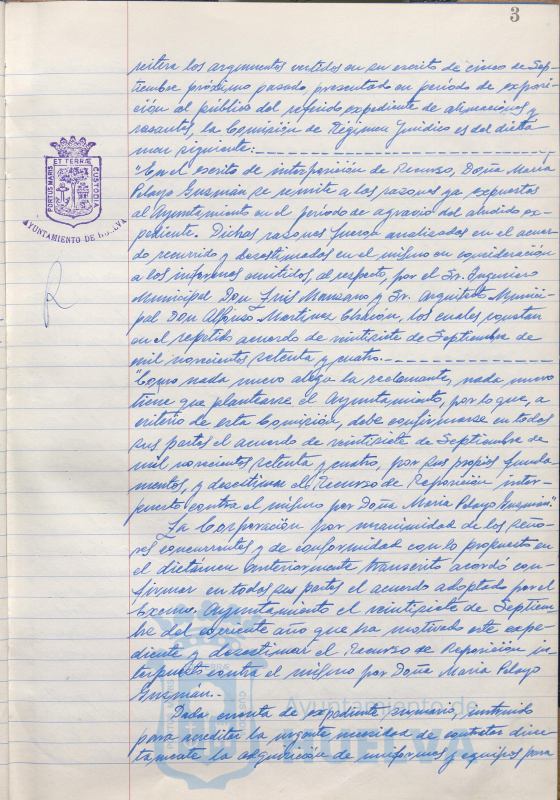 3
reitera los argumentos vertidos en su escrito de cinco de Sep-
tiembre próximo pasado presentado en período de exposi-
ción al público del referido expediente de alineaciones y
rasantes, la Comisión de Régimen Jurídico es del dicta-
men siguiente:
"En el escrito de interposición de Recurso, Doña María
Pelayo Guzmán se remite a las razones ya expuestas
al Ayuntamiento en el período de agravio del aludido ex-
pediente. Dichas razones fueron analizadas en el acuer-
do recurrido y desestimadas en el mismo en consideración
a los informes emitidos al respecto, por el Sr. Ingeniero
Municipal Don Luis Manzano y Sr. Arquitecto Munici-
pal Don Alfonso Martínez Chacón, los cuales constan
en el repetido acuerdo de veintisiete de Septiembre de
mil novecientos setenta y cuatro.
"Como nada nuevo alega la reclamante, nada nuevo
tiene que plantearse el Ayuntamiento, por lo que, a
criterio de esta Comisión, debe confirmarse en todas
sus partes el acuerdo de veintisiete de Septiembre de
mil novecientos setenta y cuatro, por sus propios funda-
mentos, y desestimar el Recurso de Reposición inter-
puesto contra el mismo por Doña María Pelayo Guzmán".
La Corporación por unanimidad de los seño-
res concurrentes y de conformidad con lo propuesto en
el dictámen anteriormente transcrito acordó con-
firmar en todas sus partes el acuerdo adoptado por el
Excmo. Ayuntamiento el veintisiete de Septiem-
bre del corriente año que ha motivado este expe-
diente y desestimar el Recurso de Reposición in-
terpuesto contra el mismo por Doña María Pelayo
Guzmán.
Dada cuenta de expediente sumario, instruido
para acreditar la urgente necesidad de contratar direc-
tamente la adquisición de uniformes y equipos para
PORTUS MARIS ET TERRAE CUSTODIA
AYUNTAMIENTO DE HUELVA
Ayuntamiento de
HUELVA